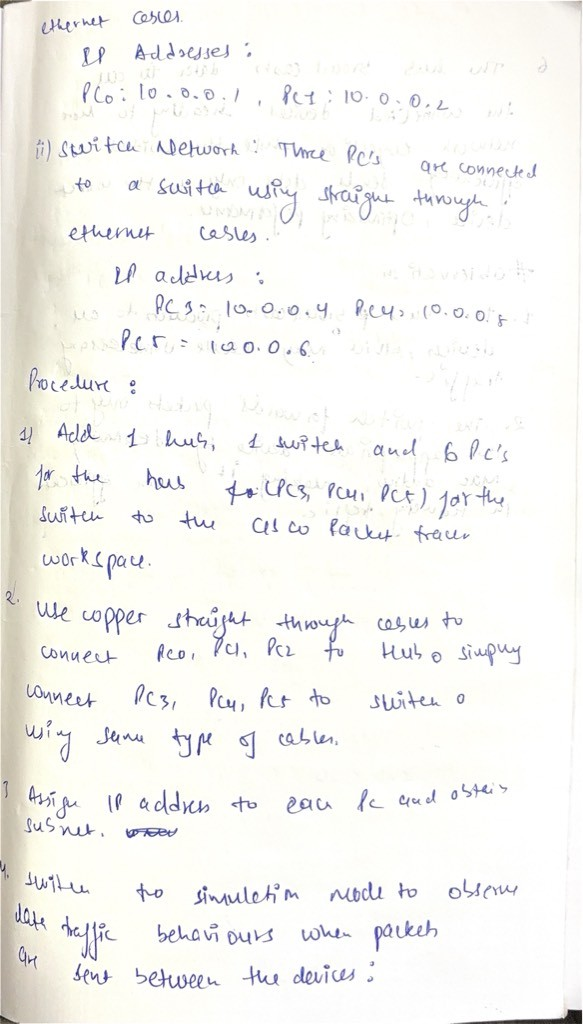 ethernet cables.
IP Addresses :
PC0 : 10.0.0.1 , PC1 : 10.0.0.2
ii) Switch Network : Three PC's are connected
to a switch using straight through
ethernet cables.
IP address :
PC3 = 10.0.0.4 PC4 = 10.0.0.5
PC5 = 10.0.0.6
Procedure :
1) Add 1 hub, 1 switch and 6 PC's
for the hub (PC3, PC4, PC5) for the
switch to the cisco Packet tracer
workspace.
2. Use copper straight through cables to
connect PC0, PC1, PC2 to Hub 0 simply
connect PC3, PC4, PC5 to switch 0
using same type of cables.
3 Assign IP address to each PC and obtain
subnet.
4. Switch to simulation mode to observe
data traffic behaviours when packets
are sent between the devices :